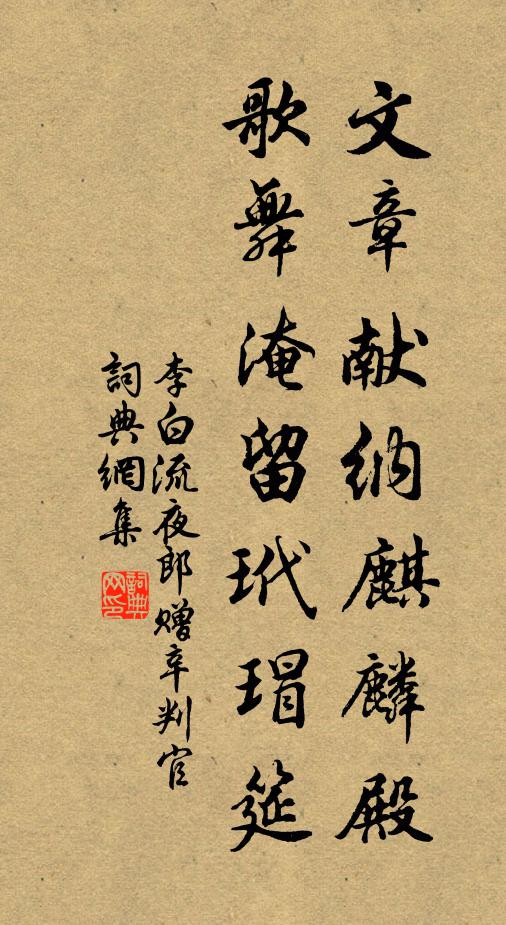 文章献纳麒麟殿
歌舞淹留玳瑁筵
李白流夜郎赠辛判官
詞典網集
詞典网印